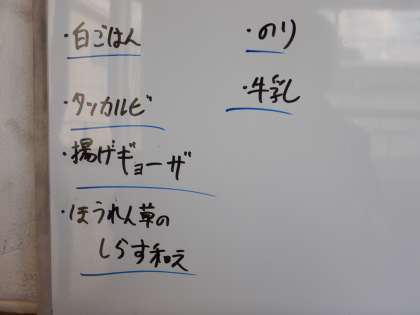 ・白ごはん
・タッカルビ
・揚げギョーザ
・ほうれん草の
しらす和え
・のり
・牛乳